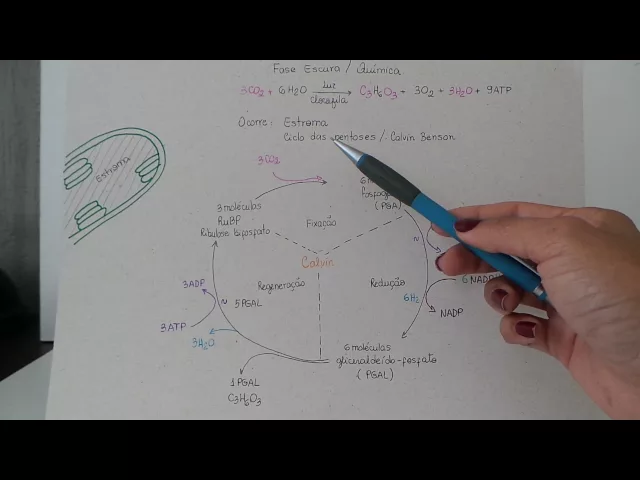 Fase Escura / Química
3CO2 + 6H2O Luz Clorofila C3H6O3 + 3O2 + 3H2O + 9ATP
Ocorre: Estroma
Ciclo das pentoses / Calvin Benson
Estroma
3CO2
3 moléculas
RuBP
Ribulose bifosfato
(PGA)
Fixação
Calvin
Regeneração
Redução
3ADP
5PGAL
3ATP
3H2O
6H2
NADP
6 moléculas
gliceraldeído-fosfato
(PGAL)
1PGAL
C3H6O3